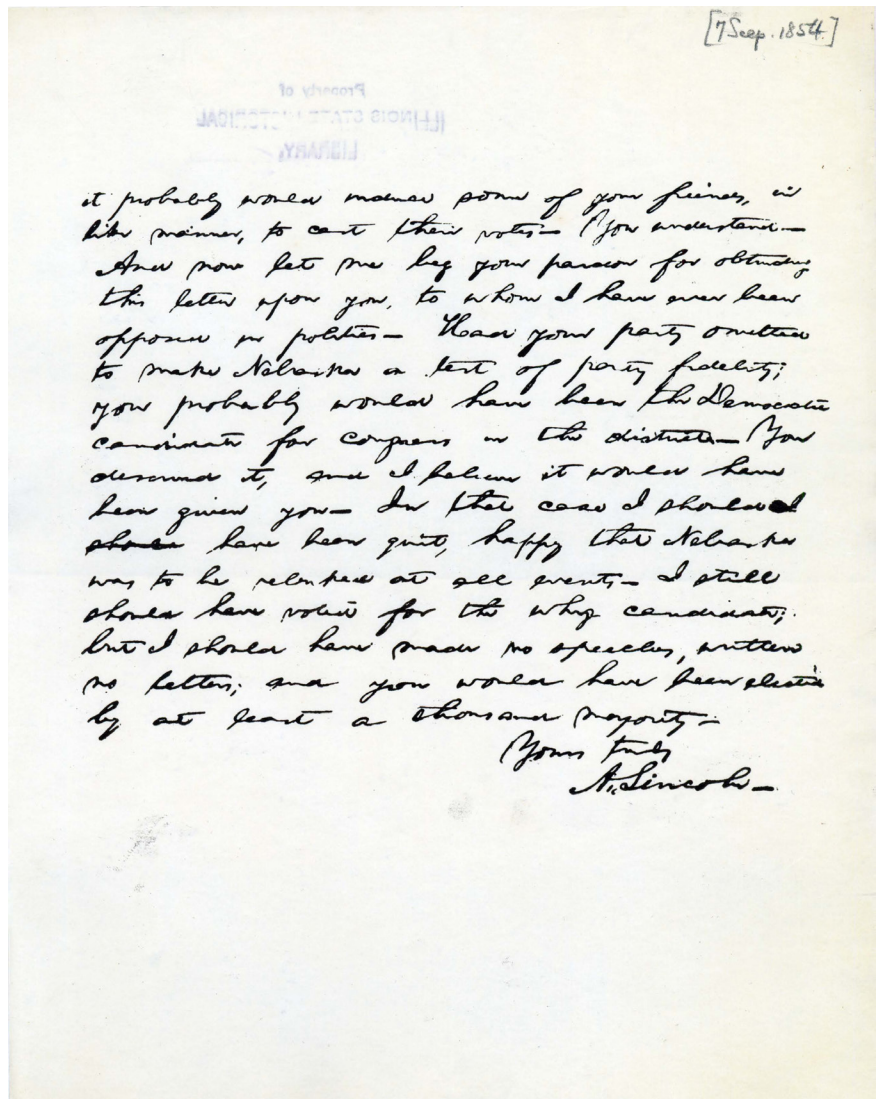 [7 Sep. 1854]
Property of
ILLINOIS STATE HISTORICAL
LIBRARY.
it probably would induce some of your friends, in
like manner, to cast their votes— You understand—
And now let me beg your pardon for obtruding
this letter upon you, to whom I have ever been
opposed in politics— Had your party omitted
to make Nebraska a test of party fidelity;
you probably would have been the Democratic
candidate for congress in the district— You
deserved it, and I believe it would have
been given you— In that case I should
should have been quit, happy that Nebraska
was to be rebuked at all events— I still
should have voted for the whig candidate;
but I should have made no speeches, written
no letters; and you would have been elected
by at least a thousand majority—
Yours truly
A. Lincoln—